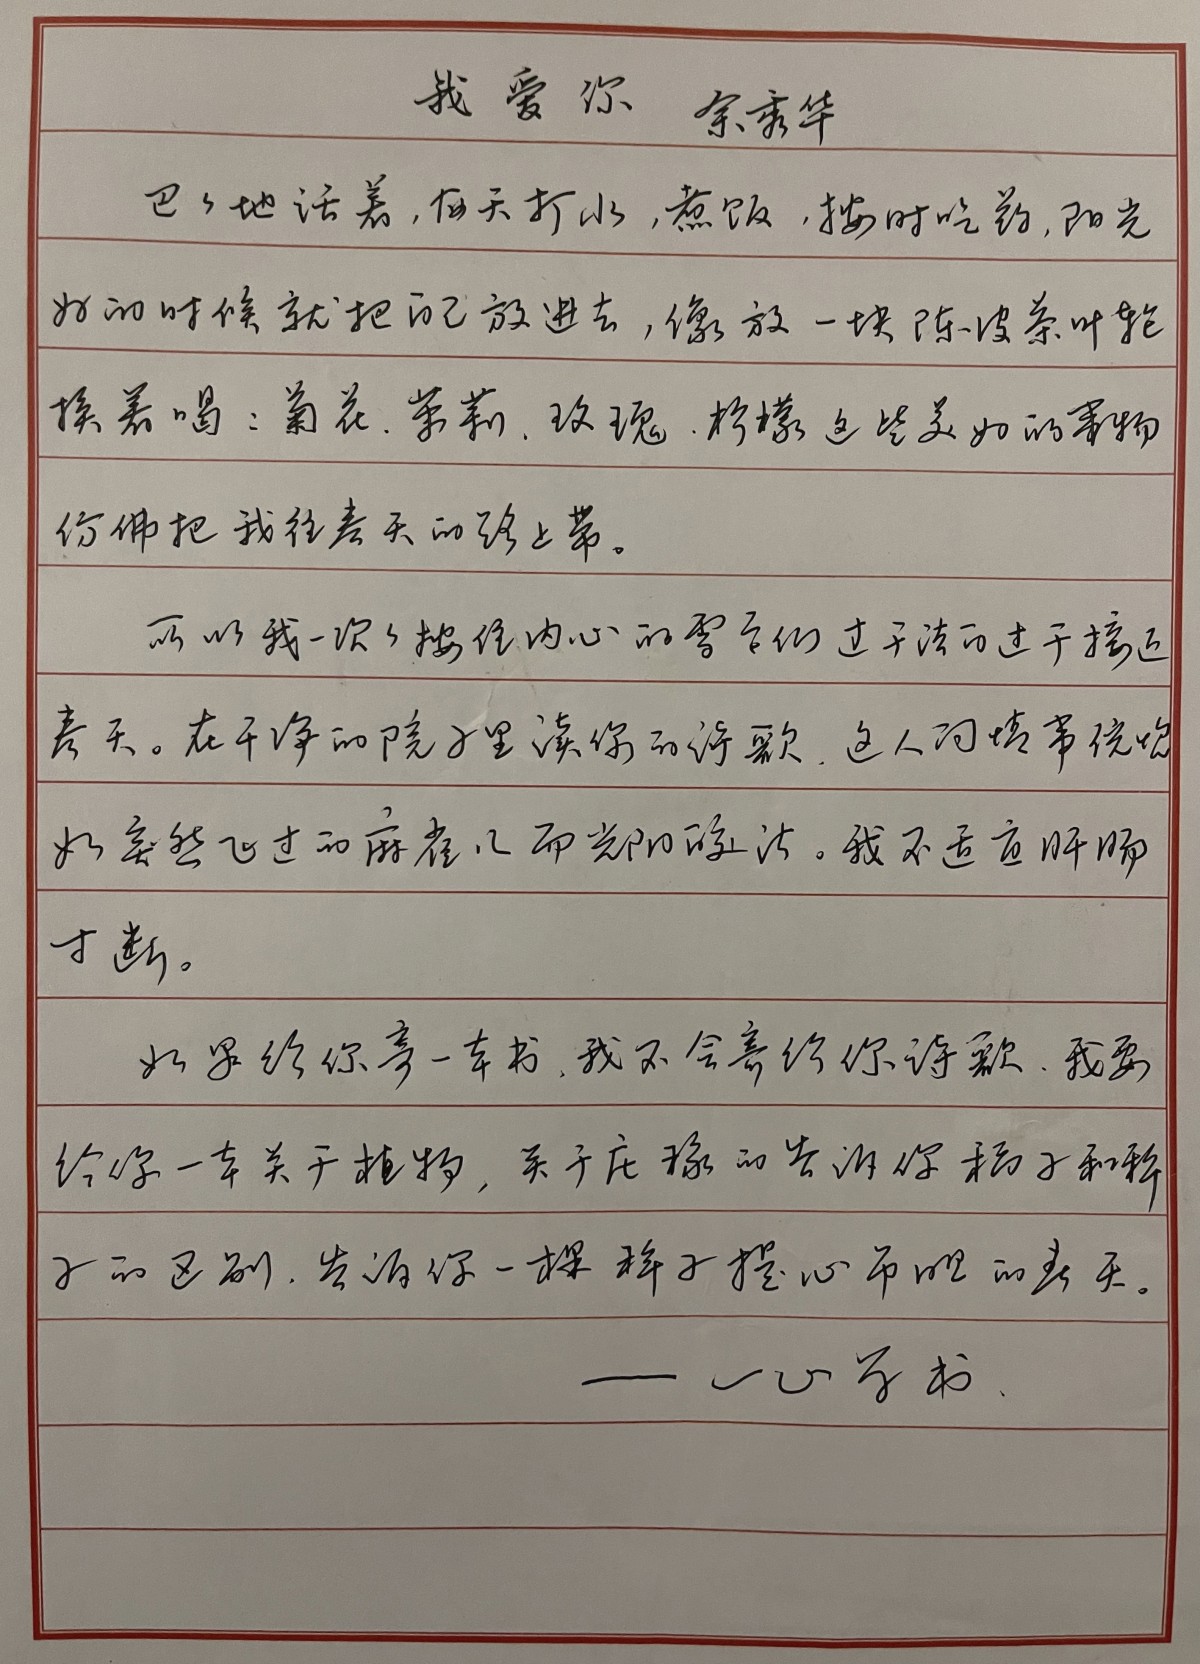 我爱你 余秀华
巴巴地活着,每天打水,煮饭,按时吃药,阳光
好的时候就把自己放进去,像放一块陈皮茶叶轮
换着喝:菊花、茉莉、玫瑰、柠檬这些美好的事物
仿佛把我往春天的路上带。
所以我一次次按住内心的雪它们过于洁白过于接近
春天。在干净的院子里读你的诗歌、这人间情事恍惚
如突然飞过的麻雀儿而光阴皎洁。我不适宜肝肠
寸断。
如果给你寄一本书、我不会寄给你诗歌、我要
给你一本关于植物,关于庄稼的告诉你稻子和稗
子的区别、告诉你一棵稗子提心吊胆的春天。
——一心学书.